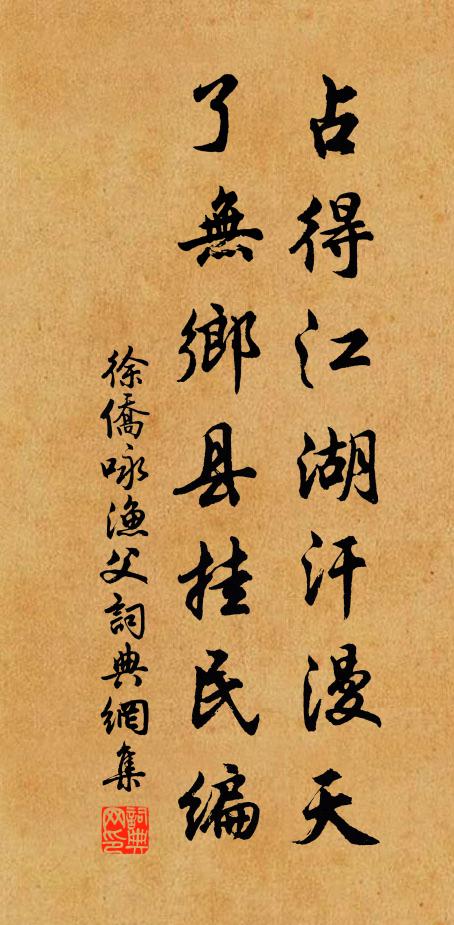 占得江湖汗漫天
了無鄉县挂民编
徐僑咏漁父詞典網集
詞典网印